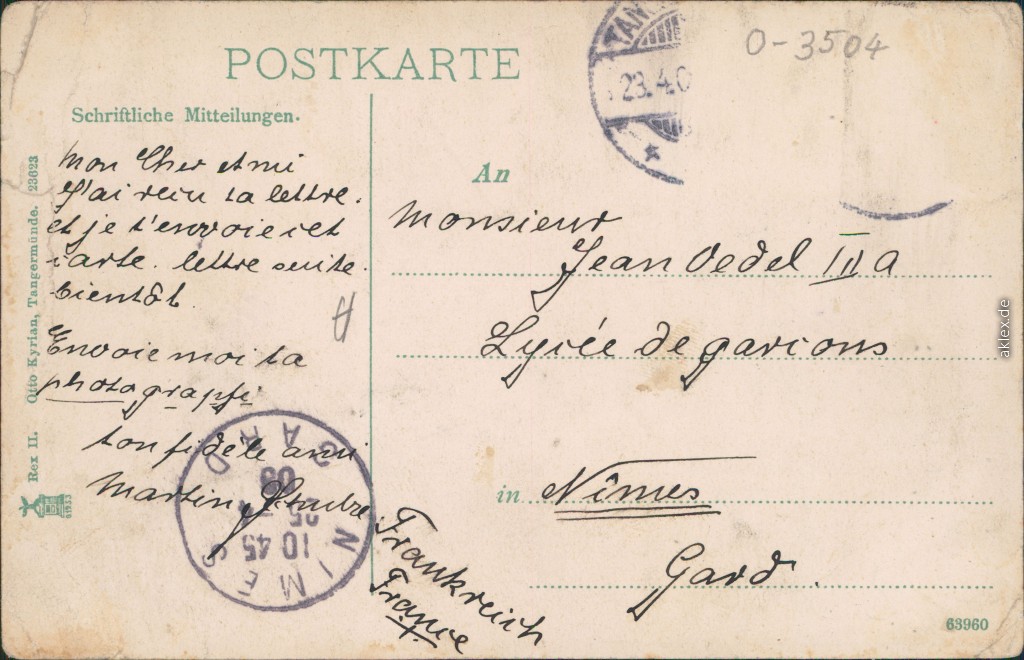 POSTKARTE
O-3504
TAN
23.4.0
Schriftliche Mitteilungen.
Mon Cher ami
J'ai reçu ta lettre.
et je t'envoie cet
carte. lettre suite.
bientôt.
Envoie moi ta
photographi
ton fidèle ami
Martin
Rex II. Otto Kyrian, Tangermünde. 23623
6193
NIMES
GARD
10 45
25
09
An
Monsieur
Jean Oedel III a
Lycée de garcons
in Nîmes
Gard.
Frankreich
France
63960
aklex.de